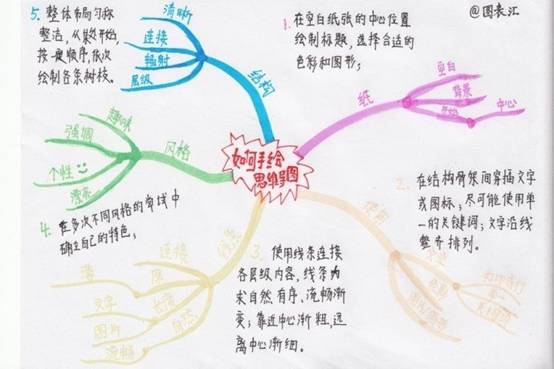 @图表汇
如何手绘
思维导图
1. 在空白纸张的中心位置
绘制标题,选择合适的
色彩和图形;
纸
空白
背景
开始
中心
2. 在结构骨架间穿插文字
或图标,尽可能使用单
一的关键词;文字沿线
整齐排列。
使用
3. 使用线条连接
各层级内容,线条力
求自然有序,流畅渐
变;靠近中心渐粗,远
离中心渐细。
连接
文字
图片
流畅
自然
4. 在多次不同风格的尝试中
确立自己的特色;
风格
趣味
强调
个性
漂亮
5. 整体布局匀称
整洁,
按一
顺序,依次
绘制各条树枝。
结构
清晰
连接
辐射
层级